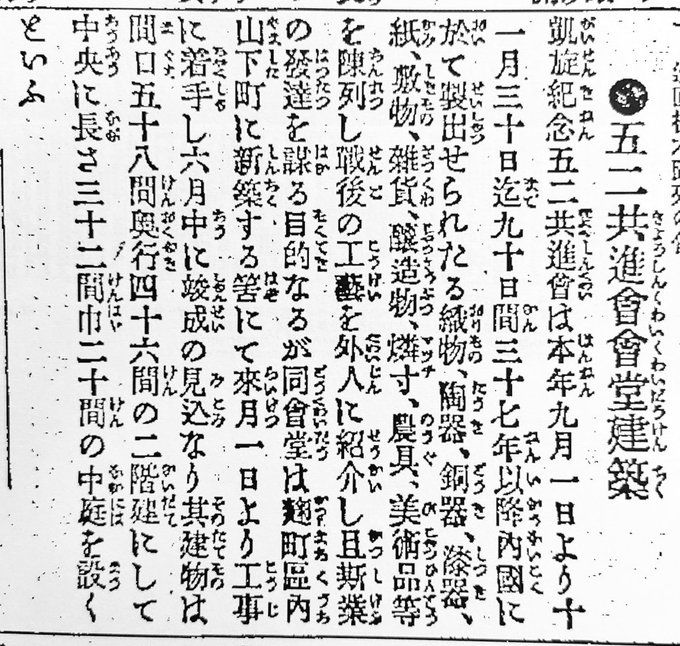 ●五二共進會會堂建築
凱旋紀念五二共進會は本年九月一日より十
一月三十日迄九十日間三十七年以降內國に
於て製出せられたる織物、陶器、銅器、漆器、
紙、敷物、雜貨、釀造物、燐寸、農具、美術品等
を陳列し戰後の工藝を外人に紹介し且斯業
の發達を謀る目的なるが同會堂は麹町區內
山下町に新築する筈にて來月一日より工事
に着手し六月中に竣成の見込なり其建物は
間口五十八間奧行四十六間の二階建にして
中央に長さ三十二間巾二十間の中庭を設く
といふ